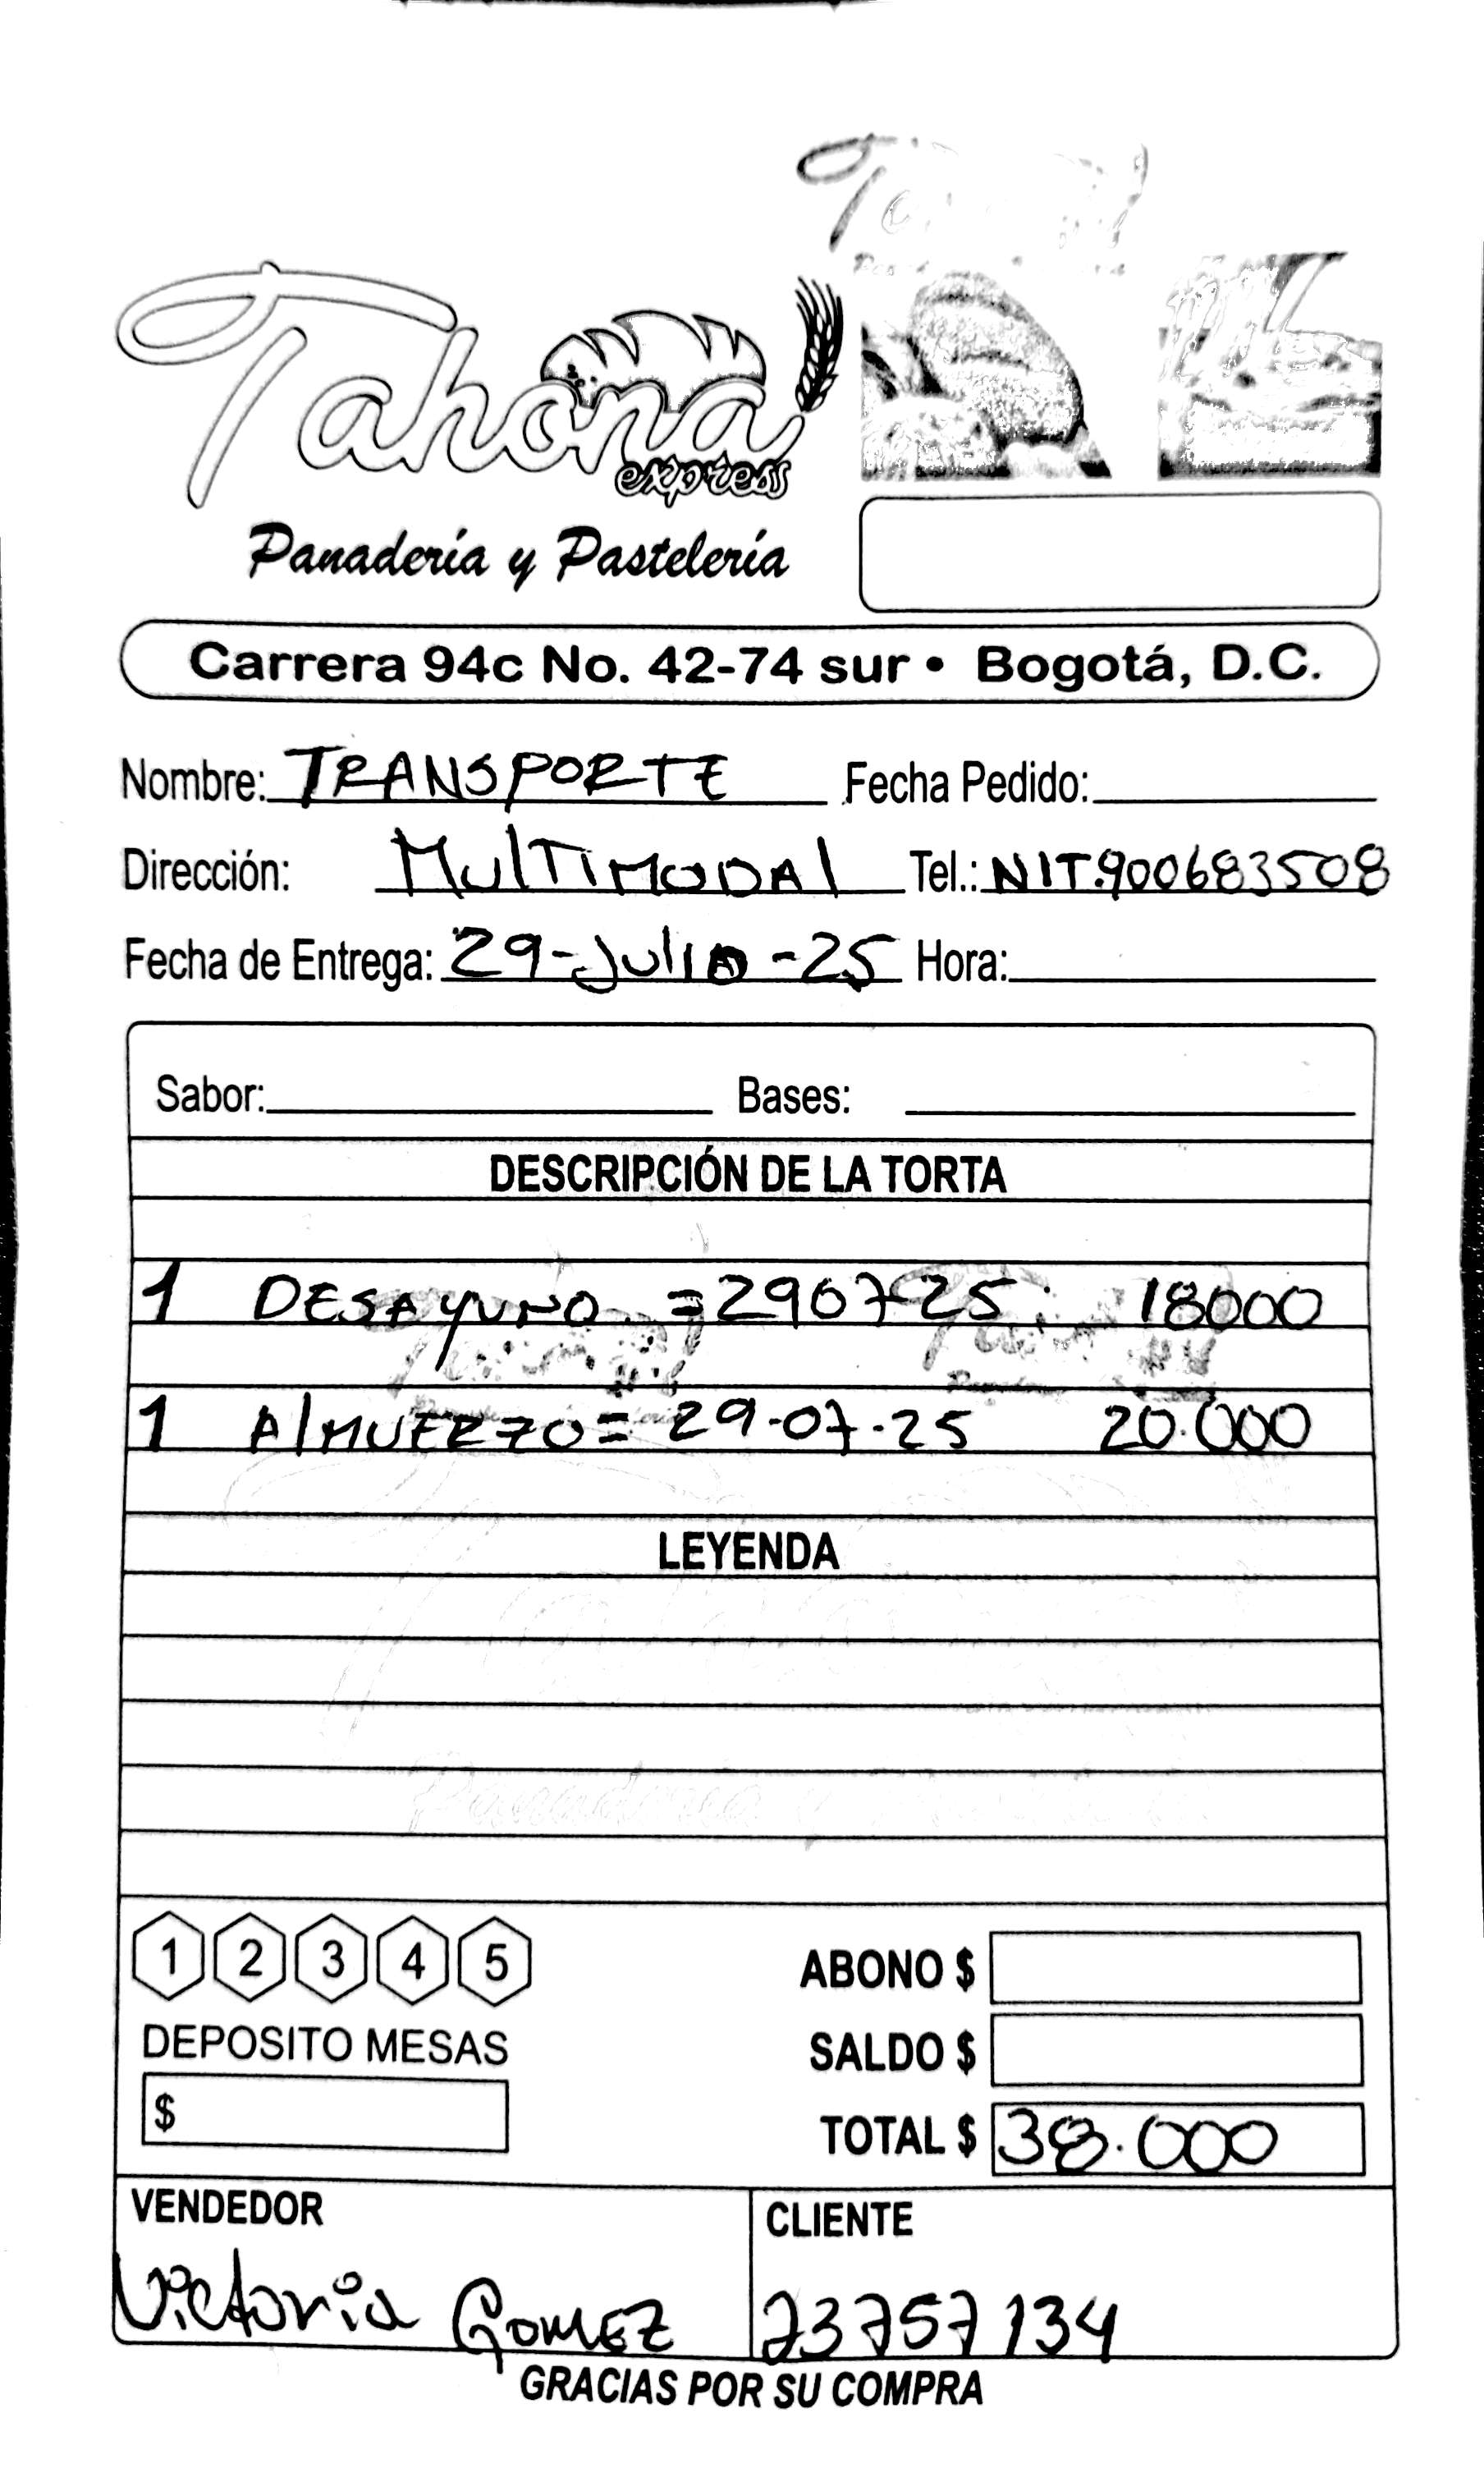 Tahona
express
Panadería y Pastelería
Carrera 94c No. 42-74 sur • Bogotá, D.C.
Nombre: TRANSPORTE Fecha Pedido:
Dirección: MulTiMODAl Tel.: NIT.900683508
Fecha de Entrega: 29-Julio-25 Hora:
Sabor: Bases:
DESCRIPCIÓN DE LA TORTA
1 DESAYUNO = 290725 18000
1 AlMUERZO = 29-07-25 20.000
LEYENDA
1 2 3 4 5
ABONO $
DEPOSITO MESAS
SALDO $
$
TOTAL $ 38.000
VENDEDOR CLIENTE
Victoria GOMEZ 23757134
GRACIAS POR SU COMPRA